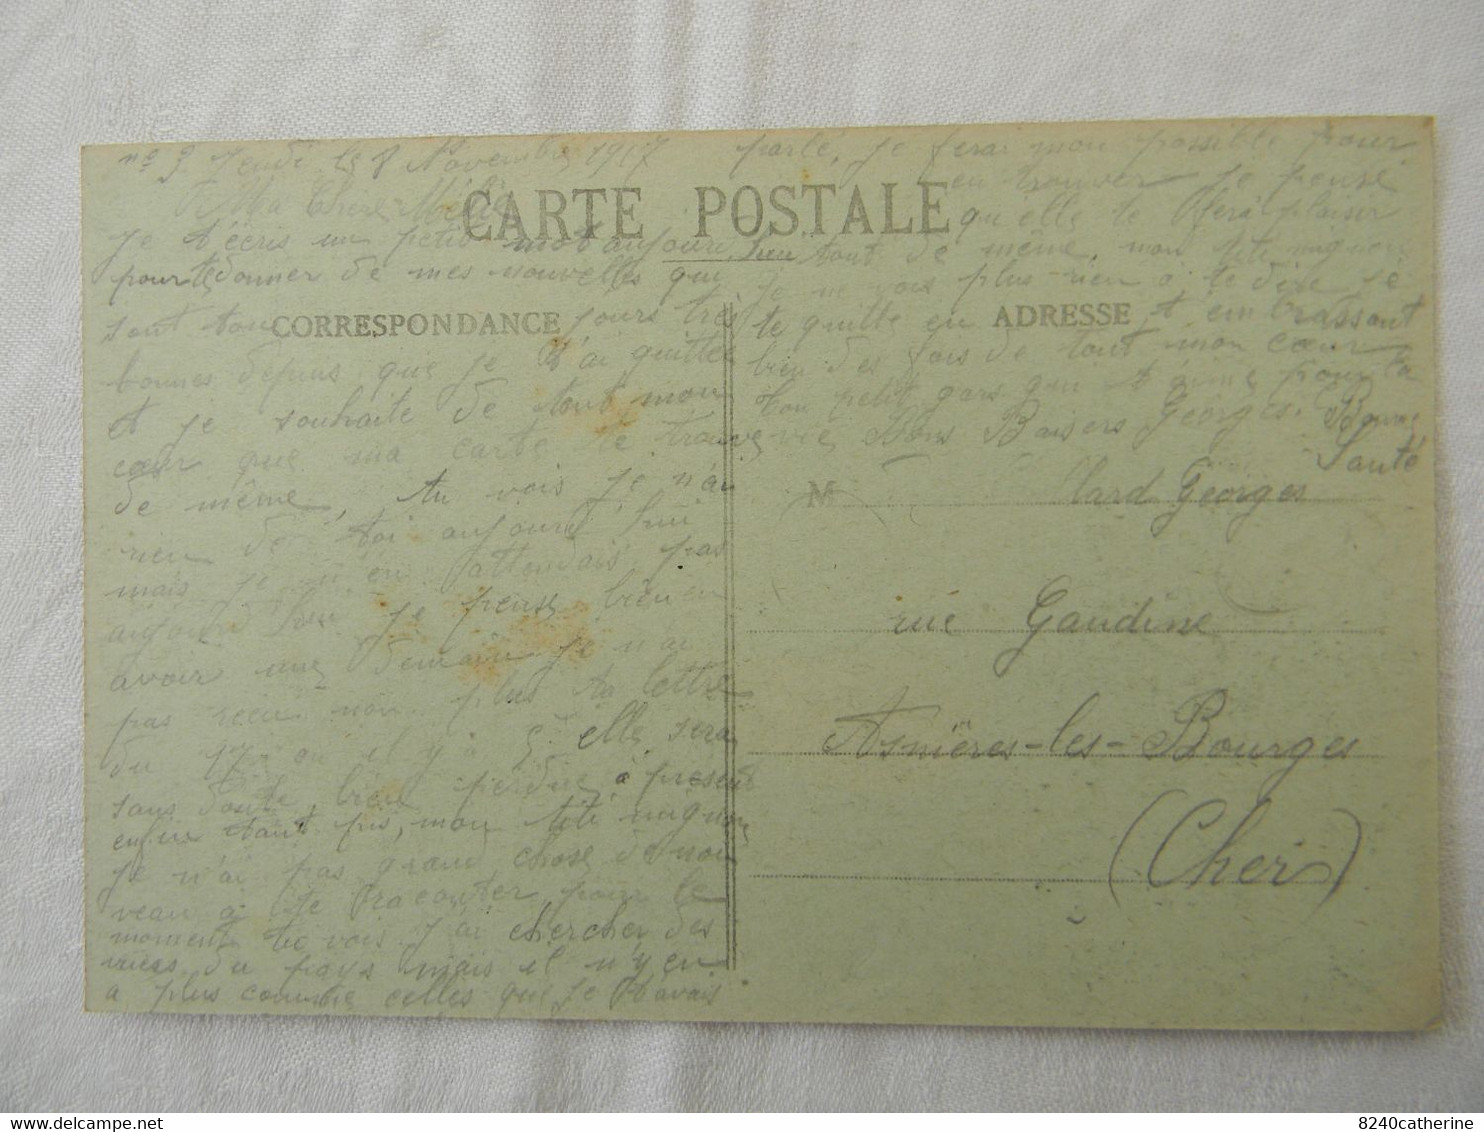 n° 9 Jeudi le 8 Novembre 1917
Ma Chere Mélie
CARTE POSTALE
Je t'écris un petit mot aujourd'hui
pour te donner de mes nouvelles qui
sont tou jours très
CORRESPONDANCE
bonnes depuis que je t'ai quittée
et je souhaite de tout mon
cœur que ma carte te trouve
de même, tu vois je n'ai
rien de toi aujourd'hui
mais je n'en attendais pas
aujourd'hui je pense bien en
avoir une demain je n'ai
pas recu non plus ta lettre
du 17 ou il y a 5 elle sera
sans doute bien perdue à présent
enfin tant pis, mon titi mignon
je n'ai pas grand chose de nou
veau à te raconter pour le
moment tu vois j'ai chercher des
vues du pays mais il n'y en
a plus comme celles que je t'avais
parlé, je ferai mon possible pour
en trouver je pense
qu'elle te fera plaisir
tout de même, mon titi mignon
je ne vois plus rien à te dire je
te quitte en t'embrassant
ADRESSE
bien des fois de tout mon cœur
ton petit gars qui t'aime pour la
vie Bons Baisers Georges. Bonne
Santé
M Clard Georges
rue Gaudine
Asnières-les-Bourges
(Cher)
8240catherine
delcampe.net